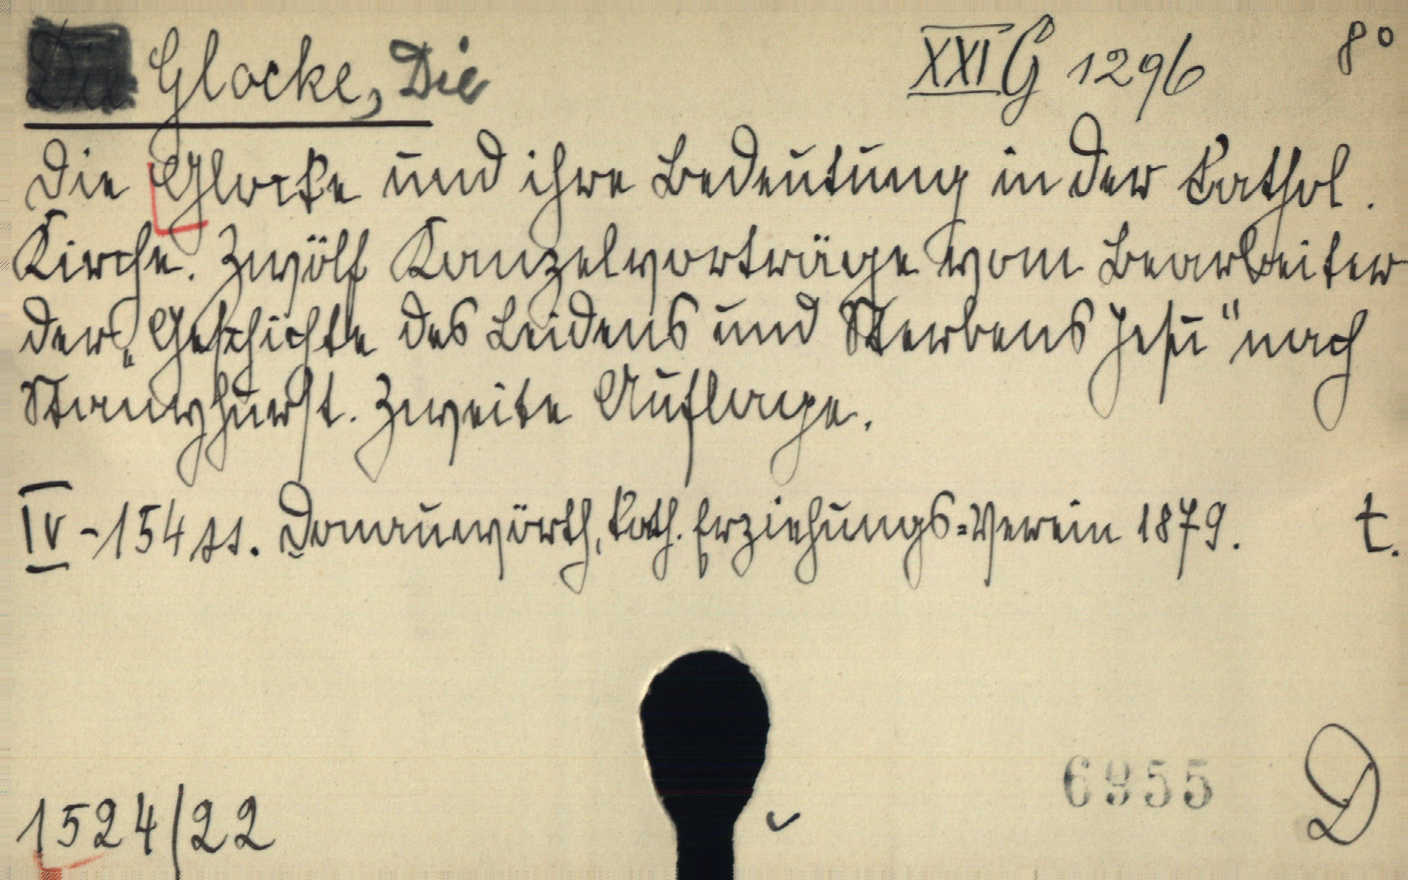 Glocke, Die XXI G 1296 8°
Die Glocke und ihre Bedeutung in der kathol.
Kirche. Zwölf Kanzelvorträge vom Bearbeiter
der „Geschichte des Leidens und Sterbens Jesu" nach
Stanyhurst. Zweite Auflage.
IV-154 ss. Donauwörth, kath. Erziehungs=Verein 1879. t.
6955 D
1524/22